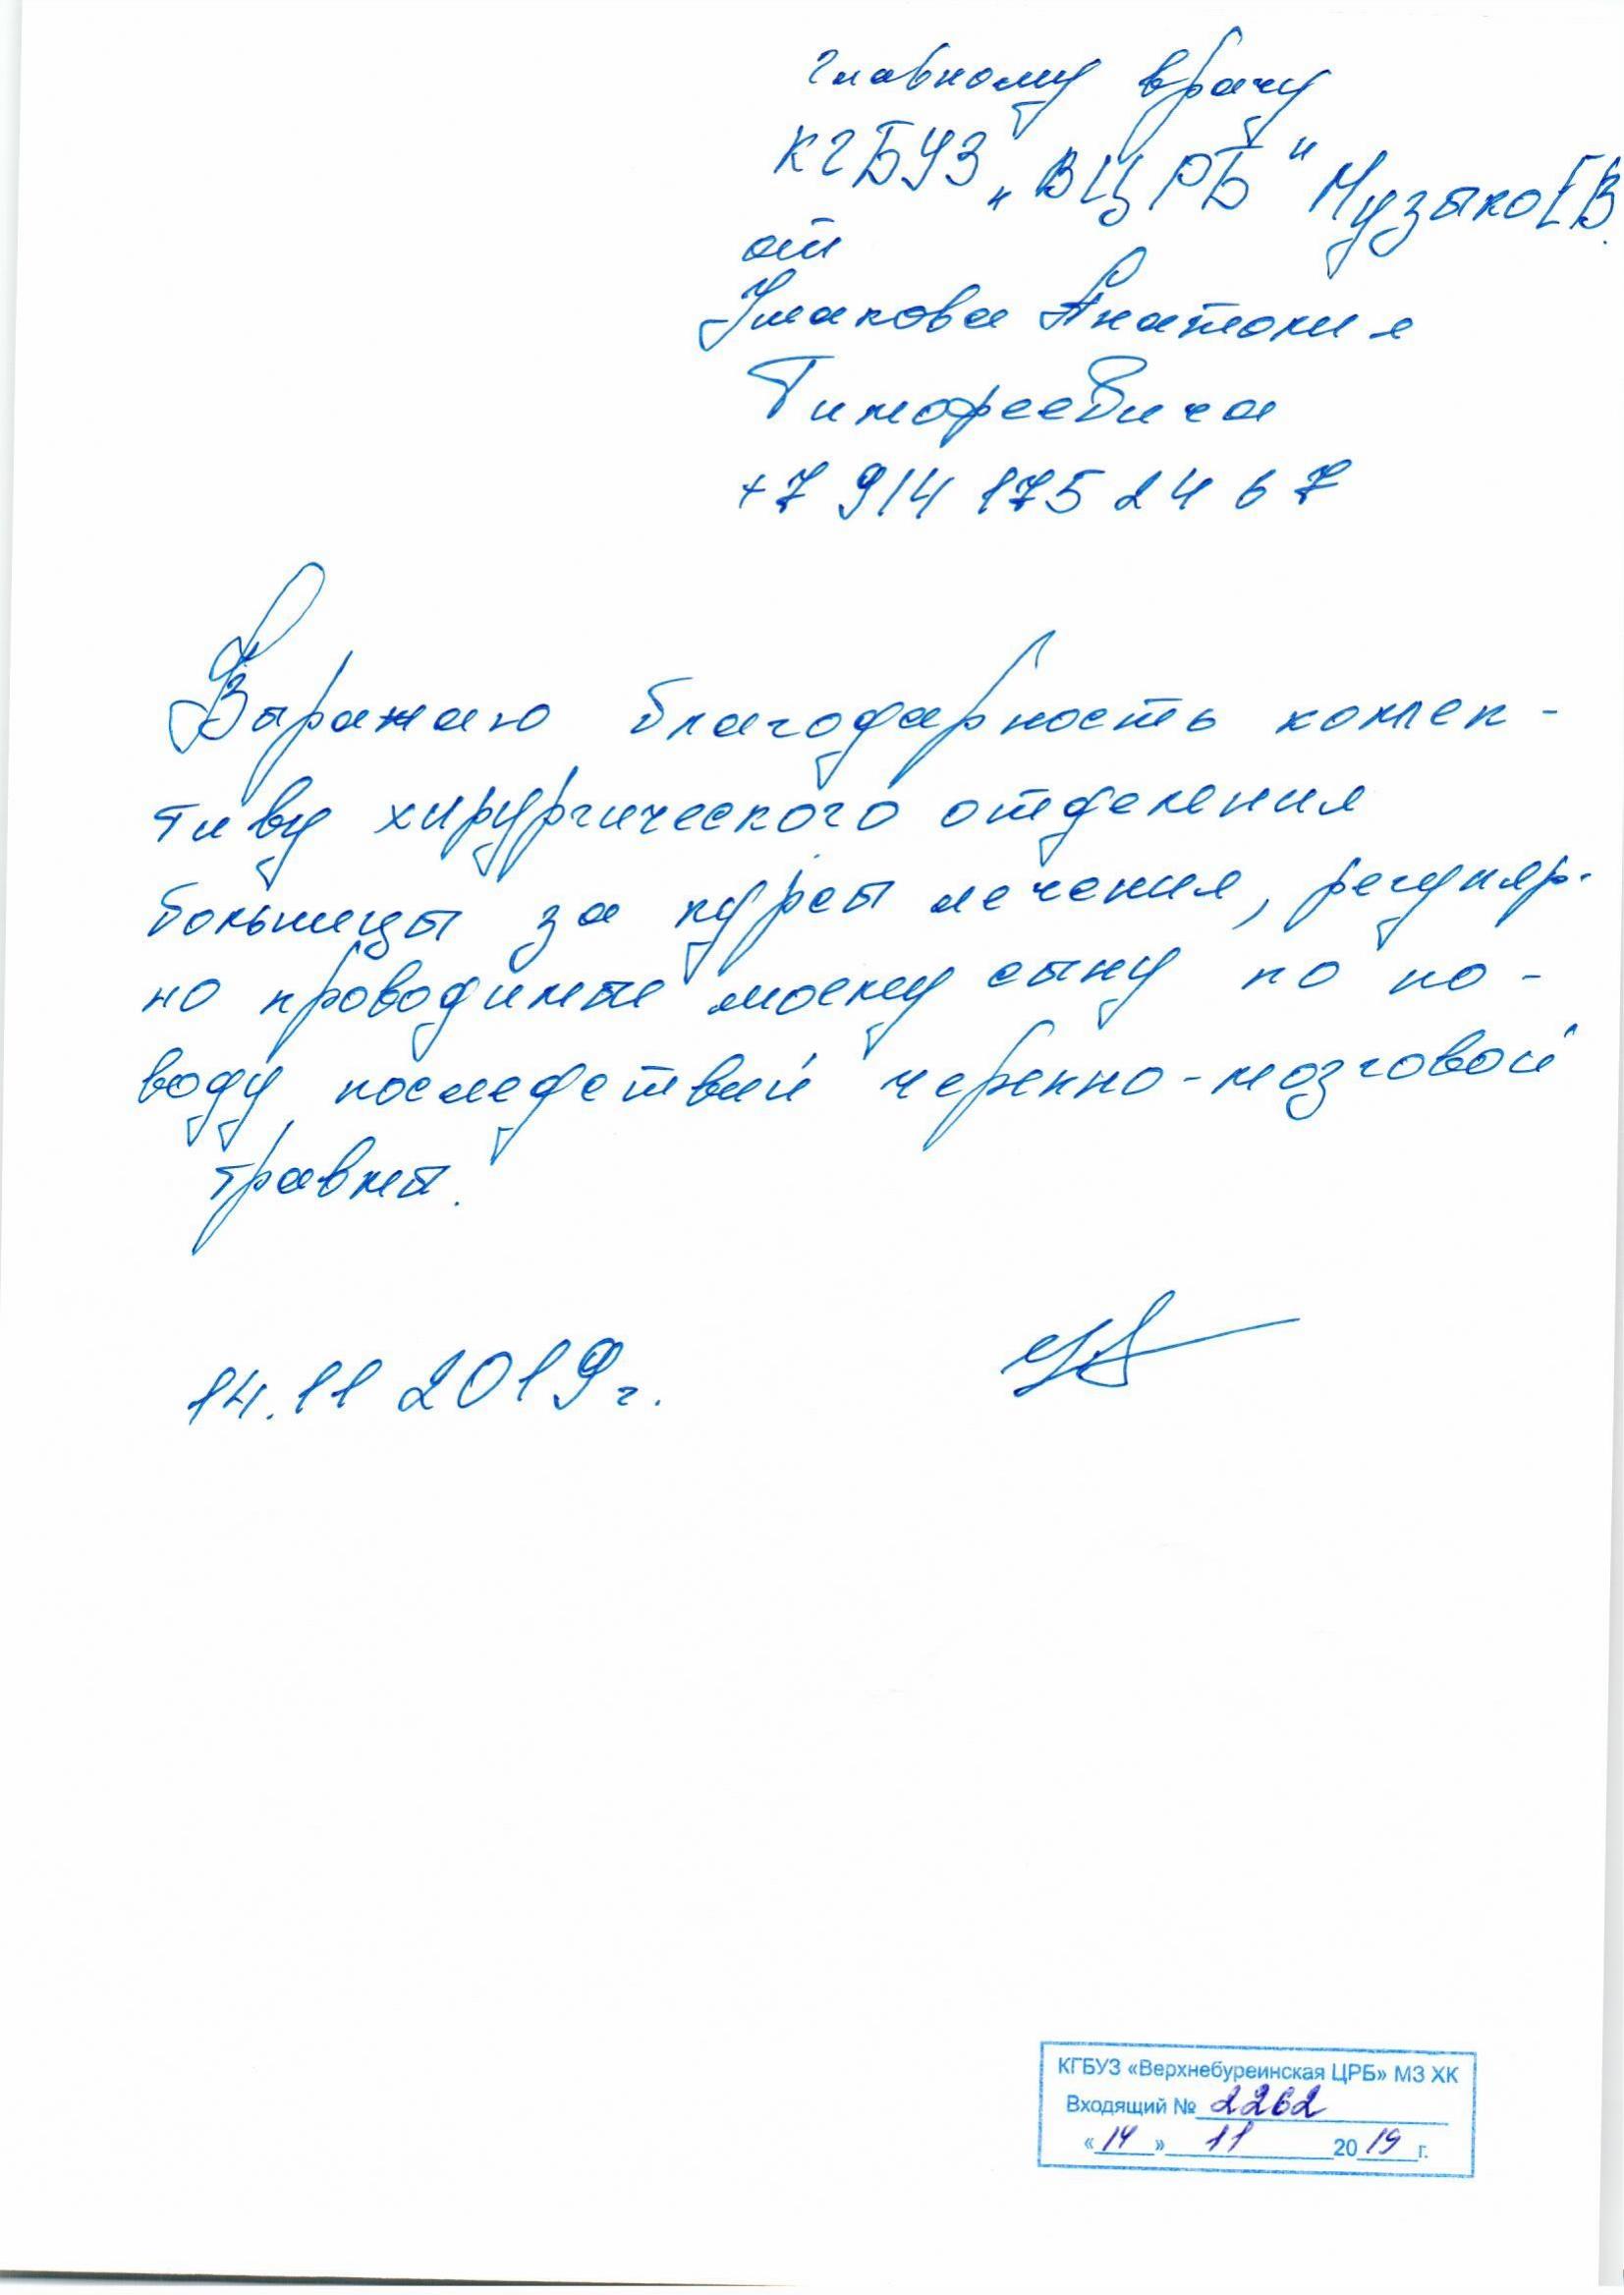 главному врачу
КГБУЗ „ВЦРБ" Музыко Е В.
от
Ушакова Анатолия
Тимофеевича
+7 914 175 24 67
Выражаю благодарность коллек-
тиву хирургического отделения
больницы за курсы лечения, регуляр-
но проводимые моему сыну по по-
воду последствий черепно-мозговой
травмы.
14.11 2019 г.
КГБУЗ «Верхнебуреинская ЦРБ» МЗ ХК
Входящий № 2262
«14» 11 2019 г.